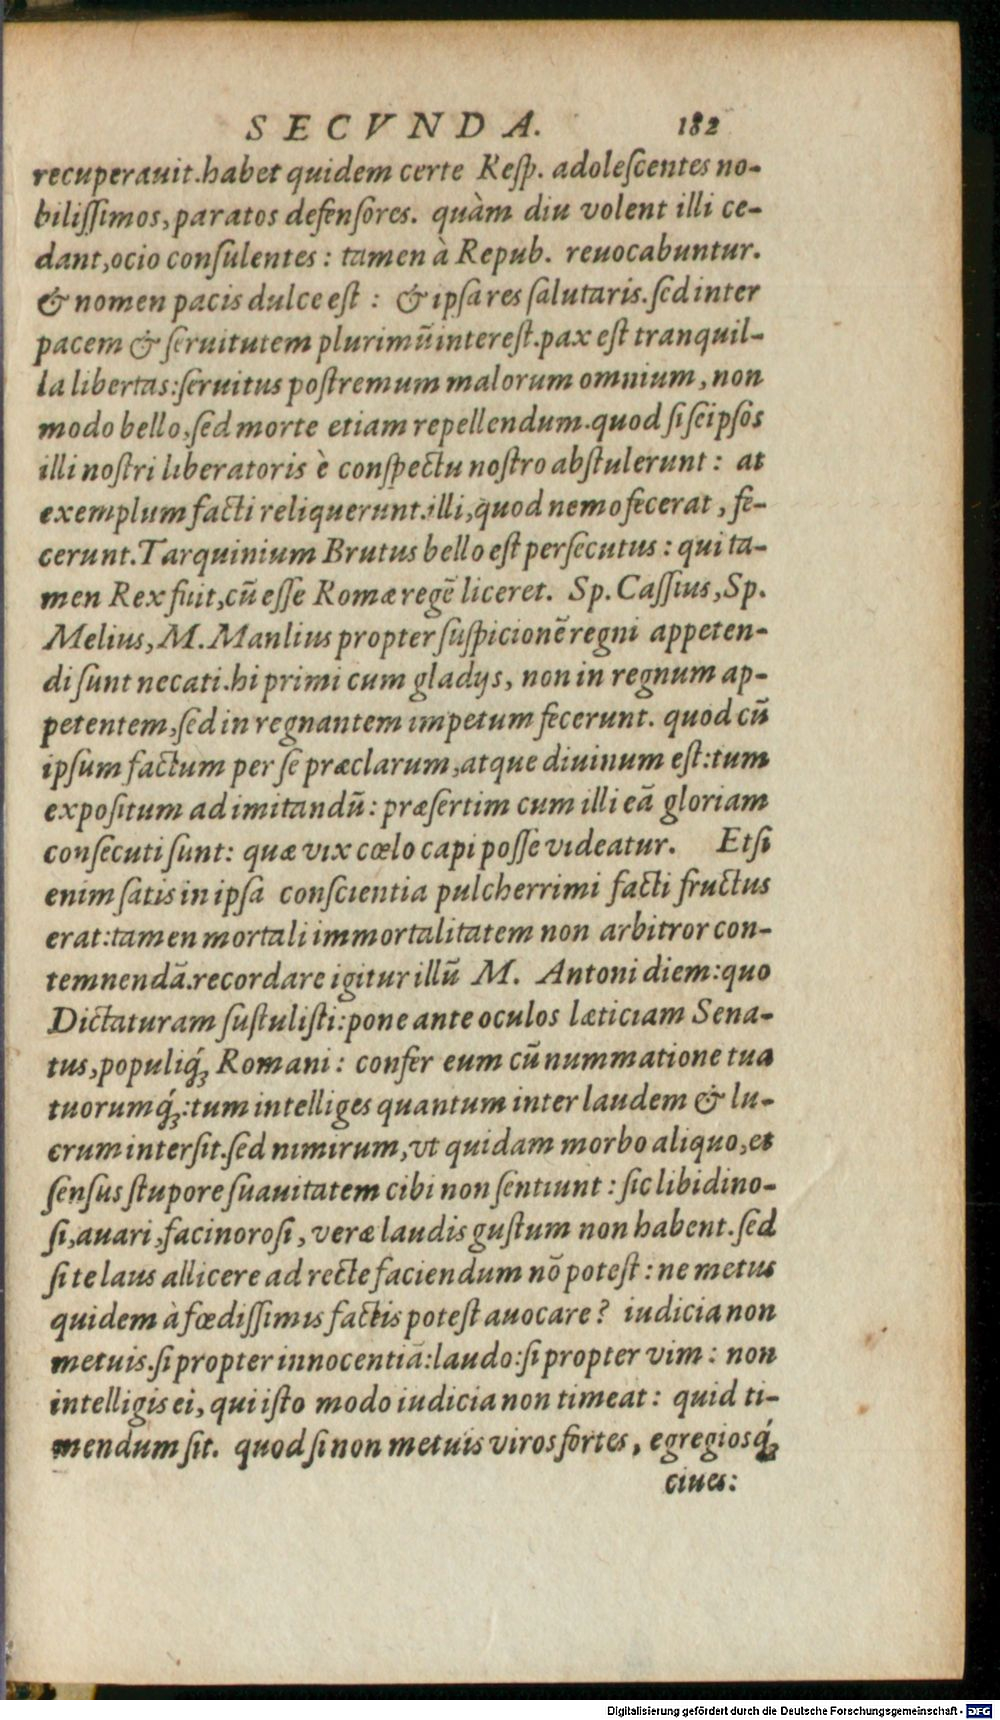 SECVNDA. 182
recuperauit.habet quidem certe Resp. adolescentes no-
bilissimos, paratos defensores. quàm diu volent illi ce-
dant,ocio consulentes: tamen à Repub. reuocabuntur.
& nomen pacis dulce est: & ipsa res salutaris.sed inter
pacem & seruitutem plurimū interest.pax est tranquil-
la libertas:seruitus postremum malorum omnium, non
modo bello,sed morte etiam repellendum.quod si seipsos
illi nostri liberatoris è conspectu nostro abstulerunt: at
exemplum facti reliquerunt.illi,quod nemo fecerat, fe-
cerunt.Tarquinium Brutus bello est persecutus: qui ta-
men Rex fuit,cū esse Romæ regē liceret. Sp. Cassius, Sp.
Melius, M. Manlius propter suspicionē regni appeten-
di sunt necati.hi primi cum gladijs, non in regnum ap-
petentem,sed in regnantem impetum fecerunt. quod cū
ipsum factum per se præclarum,atque diuinum est:tum
expositum ad imitandū: præsertim cum illi eā gloriam
consecuti sunt: quæ vix cœlo capi posse videatur. Etsi
enim satis in ipsa conscientia pulcherrimi facti fructus
erat:tamen mortali immortalitatem non arbitror con-
temnendā.recordare igitur illū M. Antoni diem:quo
Dictaturam sustulisti:pone ante oculos læticiam Sena-
tus,populiq́ꝫ Romani: confer eum cū nummatione tua
tuorumq́ꝫ:tum intelliges quantum inter laudem & lu-
crum intersit.sed nimirum,vt quidam morbo aliquo,et
sensus stupore suauitatem cibi non sentiunt: sic libidino-
si,auari,facinorosi, veræ laudis gustum non habent.sed
si te laus allicere ad recte faciendum nō potest: ne metus
quidem à fœdissimis factis potest auocare? iudicia non
metuis.si propter innocentiā:laudo:si propter vim: non
intelligis ei, qui isto modo iudicia non timeat: quid ti-
mendum sit. quod si non metuis viros fortes, egregiosq́ꝫ
ciues:
Digitalisierung gefördert durch die Deutsche Forschungsgemeinschaft - DFG